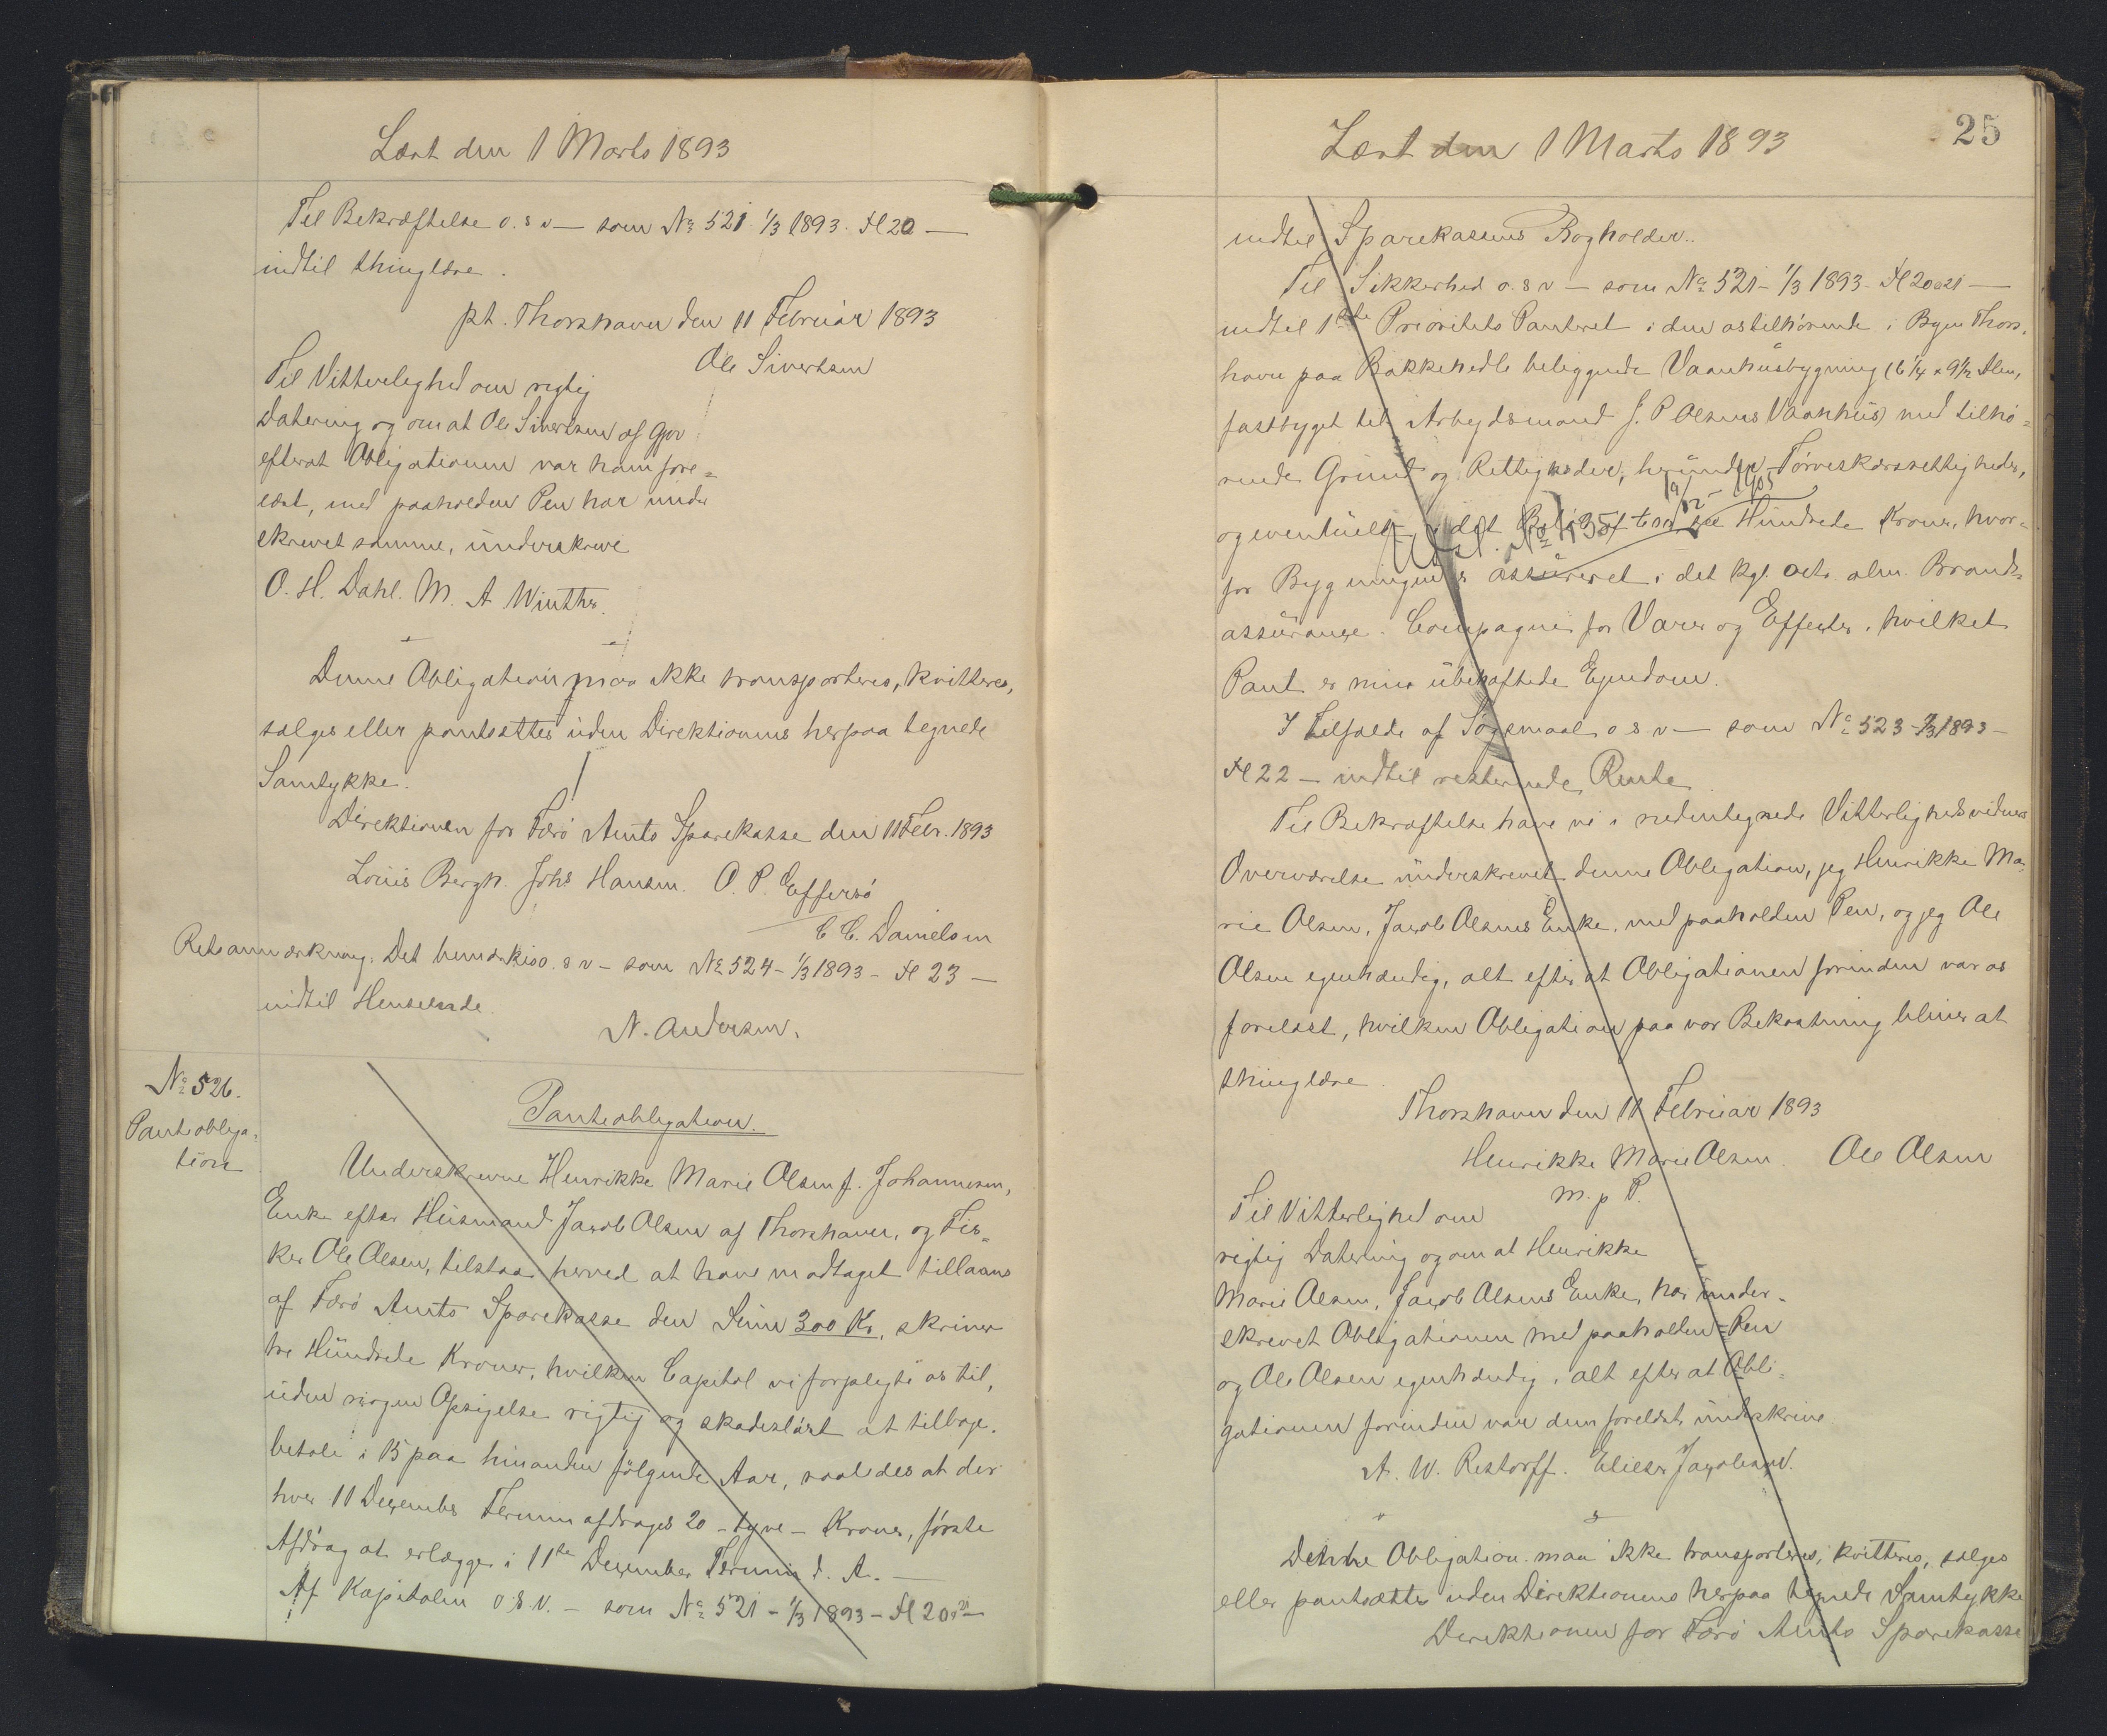 Læst den 1 Marts 1893
Til Bekræftelse o. s v — som No 521 1/3 1893. Fl 20 —
indtil thinglæse.
pt. Thorshavn den 11 Februar 1893
Ole Sivertsen
Til Vitterlighed om rigtig
Datering og om at Ole Sivertsen af Gjov
efterat Obligationen var ham fore=
læst, med paaholden Pen har under
skrevet samme, underskrive
O. H. Dahl. M. A Winther.
Denne Obligation maa ikke transporteres, kvitteres,
sælges eller pantsættes uden Direktionens herpaa tegnede
Samtykke.
Direktionen for Færö Amts Sparekasse den 11 Febr. 1893
Louis Bergh. Johs Hansen. O. P. Effersö
C C. Danielsen
Retsanmærkning: Det bemærkes o. s v — som No 524 — 1/3 1893 — Fl 23 —
indtil Henseende.
N. Andersen.
No 526.
Panteobliga=
tion
Panteobligation.
Underskrevne Henrikke Marie Olsen f. Johannesen,
Enke efter Husmand Jacob Olsen af Thorshavn, og Fis=
ker Ole Olsen, tilstaa herved at have modtaget tillaans
af Færö Amts Sparekasse den Sum 300 Kr, skriver
tre Hundrede Kroner, hvilken Capital vi forpligte os til,
uden nogen Opsigelse rigtig og skadesløst at tilbage=
betale i 15 paa hinanden følgende Aar, saaledes at der
hver 11 December Termin afdrages 20 — tyve — Kroner, første
Afdrag at erlægge i 11te December Termin d. A. —
Af Kapitalen o. s. v. — som No 521 — 1/3 1893 — Fl 20 & 21 —
25
Læst den 1 Marts 1893
indtil Sparekassens Bogholder.
Til Sikkerhed o. s v — som No 521 — 1/3 1893 — Fl 20 & 21 —
indtil 1ste Prioritets Panteret i den os tilhørende i Byen Thors=
havn paa Bakkehedle beliggende Vaanhusbygning (6 1/4 x 9 1/2 Alen,
fastbygget til Arbejdsmand J. P Olsens Vaanhus) med tilhø=
rende Grund og Rettigheder, herunder Tørveskærsrettigheder,
og eventuelt i det Beløb af tre Hundrede Kroner, hvor=
Udsl. No 435 19/12 1905
for Bygningen er assureret i det kgl. octr. alm. Brand=
assurance Compagni for Varer og Effecter, hvilket
Pant er min ubehæftede Ejendom.
I Tilfælde af Søgsmaal o s v — som No 523 — 1/3 1893 —
Fl 22 — indtil resterende Rente.
Til Bekræftelse have vi i nedentegnede Vitterlighedsvidners
Overværelse underskrevet denne Obligation, jeg Henrikke Ma=
rie Olsen, Jacob Olsens Enke, med paaholden Pen, og jeg Ole
Olsen egenhændig, alt efter at Obligationen forinden var os
forelæst, hvilken Obligation paa vor Bekostning bliver at
thinglæse.
Thorshavn den 11 Februar 1893
Henrikke Marie Olsen. Ole Olsen
m. p P.
Til Vitterlighed om
rigtig Datering og om at Henrikke
Marie Olsen, Jacob Olsens Enke, har under=
skrevet Obligationen med paaholden Pen
og Ole Olsen egenhændig, alt efter at Obli=
gationen forinden var dem forelæst, underskrive
A. W. Restorff. Elieser Jacobsen.
Denne Obligation maa ikke transporteres, kvitteres, sælges
eller pantsættes uden Direktionens herpaa tegnede Samtykke
Direktionen for Færö Amts Sparekasse